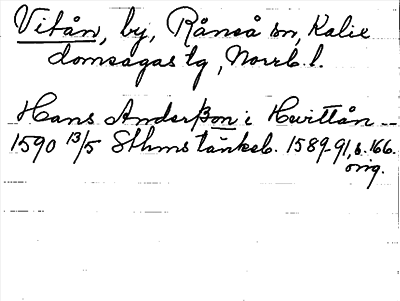 Vitån, by, Råneå sn, Kalix
domsagas tg, Norrb. l.
Hans Anderßon i Hwittån --
1590 13/5 Sthms tänkeb. 1589-91, s. 166.
orig.